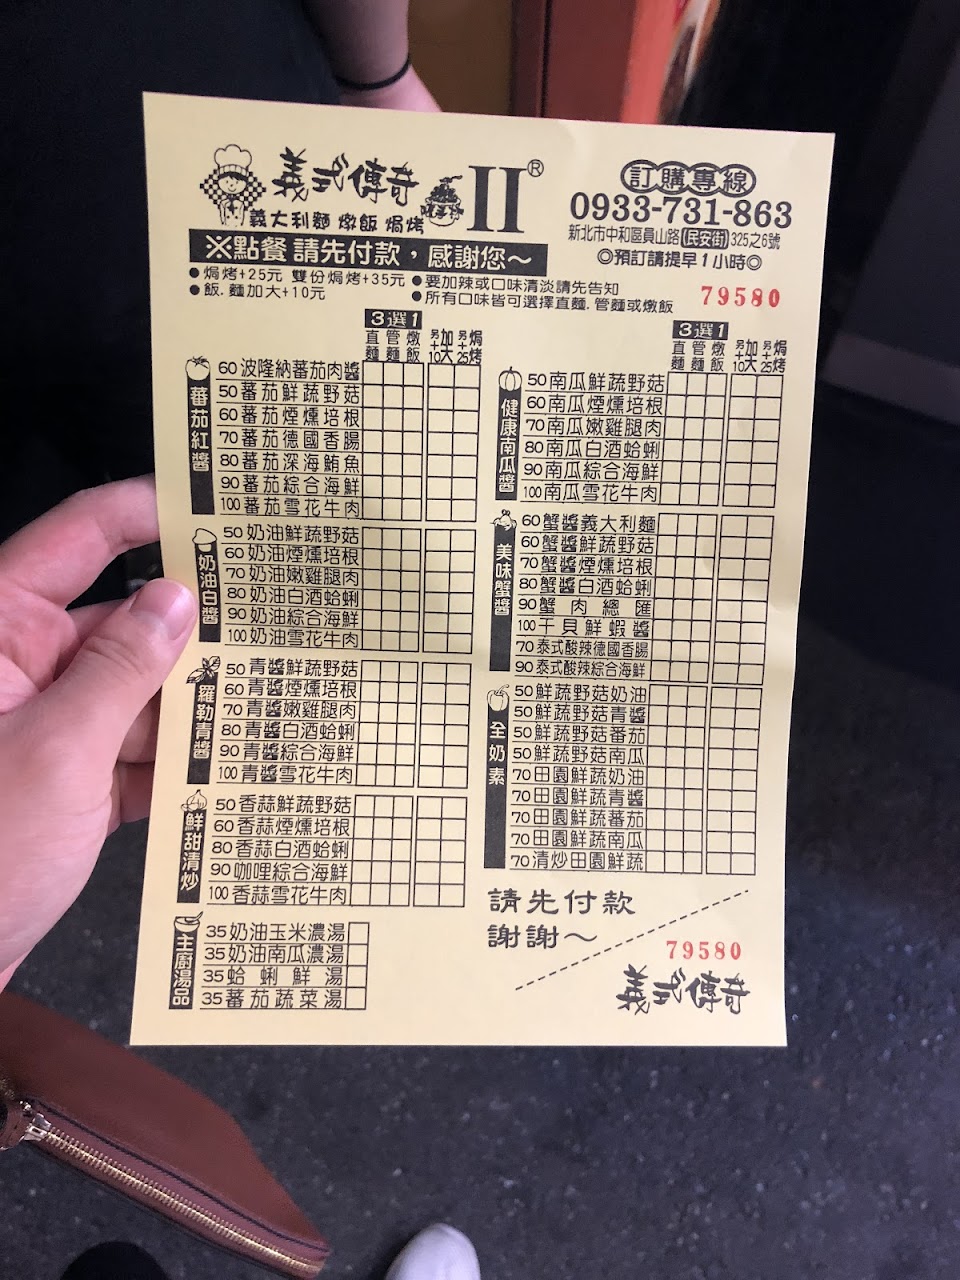 義式傳奇 II®
義大利麵 燉飯 焗烤
訂購專線
0933-731-863
新北市中和區員山路(民安街)325之6號
◎預訂請提早1小時◎
※點餐 請先付款，感謝您～
●焗烤+25元 雙份焗烤+35元
●飯.麵加大+10元
●要加辣或口味清淡請先告知
●所有口味皆可選擇直麵.管麵或燉飯
79580
3選1
直麵 管麵 燉飯 另+10加大 另+25焗烤
蕃茄紅醬
60波隆納蕃茄肉醬
50蕃茄鮮蔬野菇
60蕃茄煙燻培根
70蕃茄德國香腸
80蕃茄深海鮪魚
90蕃茄綜合海鮮
100蕃茄雪花牛肉
奶油白醬
50奶油鮮蔬野菇
60奶油煙燻培根
70奶油嫩雞腿肉
80奶油白酒蛤蜊
90奶油綜合海鮮
100奶油雪花牛肉
羅勒青醬
50青醬鮮蔬野菇
60青醬煙燻培根
70青醬嫩雞腿肉
80青醬白酒蛤蜊
90青醬綜合海鮮
100青醬雪花牛肉
鮮甜清炒
50香蒜鮮蔬野菇
60香蒜煙燻培根
80香蒜白酒蛤蜊
90咖哩綜合海鮮
100香蒜雪花牛肉
主廚湯品
35奶油玉米濃湯
35奶油南瓜濃湯
35蛤蜊鮮湯
35蕃茄蔬菜湯
3選1
直麵 管麵 燉飯 另+10加大 另+25焗烤
健康南瓜醬
50南瓜鮮蔬野菇
60南瓜煙燻培根
70南瓜嫩雞腿肉
80南瓜白酒蛤蜊
90南瓜綜合海鮮
100南瓜雪花牛肉
美味蟹醬
60蟹醬義大利麵
60蟹醬鮮蔬野菇
70蟹醬煙燻培根
80蟹醬白酒蛤蜊
90蟹肉總匯
100干貝鮮蝦醬
70泰式酸辣德國香腸
90泰式酸辣綜合海鮮
全奶素
50鮮蔬野菇奶油
50鮮蔬野菇青醬
50鮮蔬野菇蕃茄
50鮮蔬野菇南瓜
70田園鮮蔬奶油
70田園鮮蔬青醬
70田園鮮蔬蕃茄
70田園鮮蔬南瓜
70清炒田園鮮蔬
請先付款
謝謝～
79580
義式傳奇